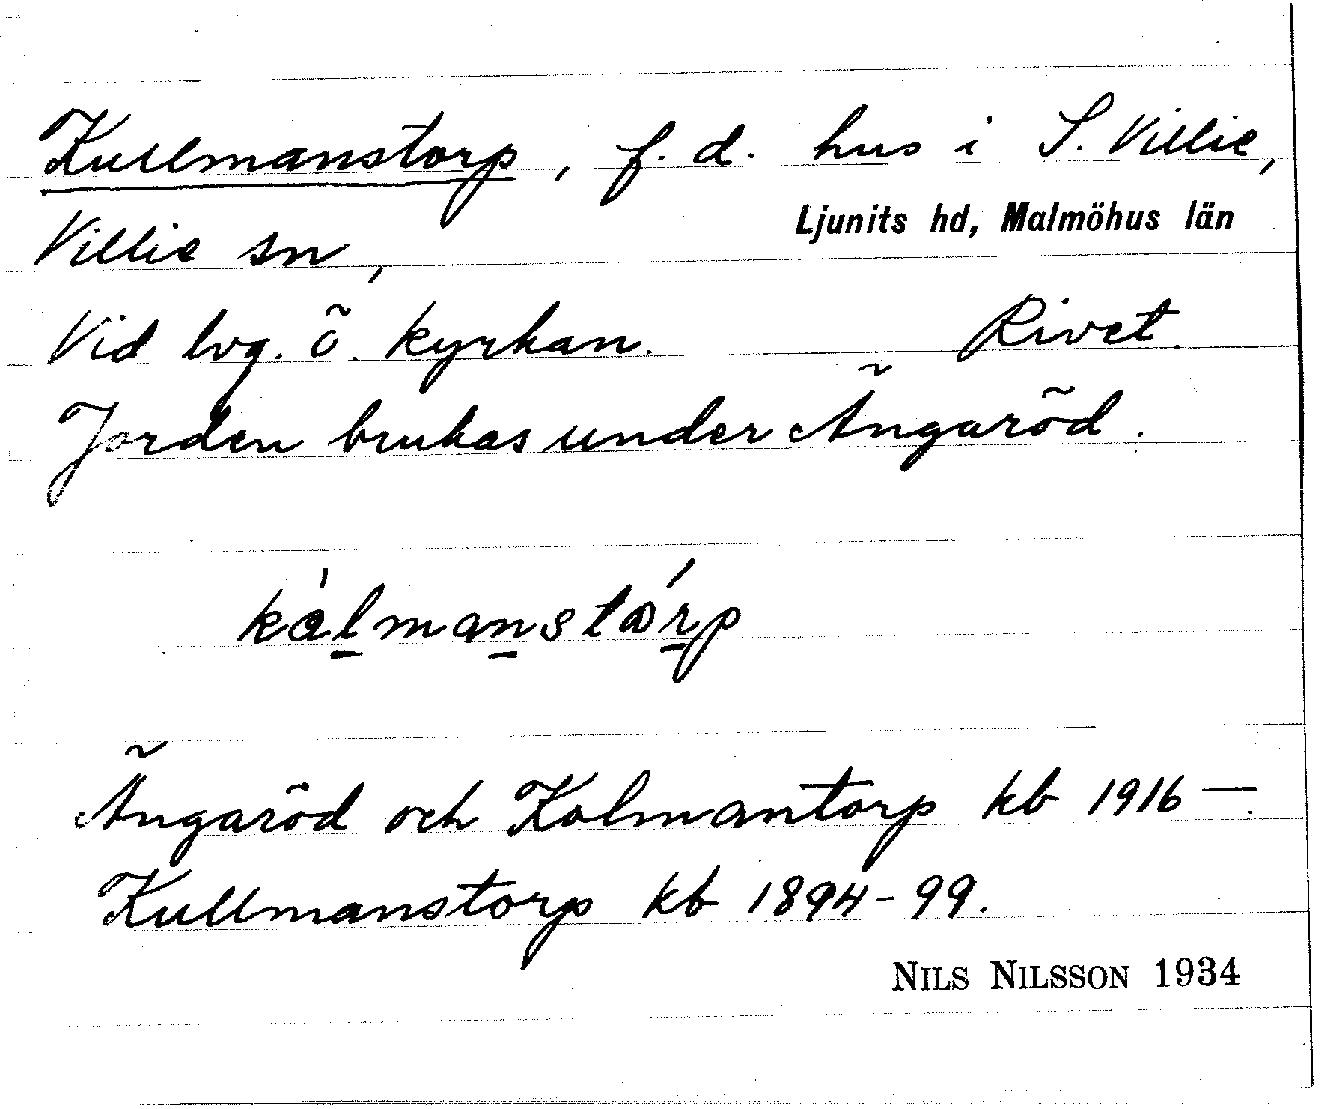 Kullmanstorp, f. d. hus i S. Villie,
Ljunits hd, Malmöhus län
Villie sn,
Vid lvg. ö. kyrkan. Rivet.
Jorden brukas under Ängaröd.
kàlmanstårp
Ängaröd och Kolmantorp kb 1916—.
Kullmanstorp kb 1894-99.
NILS NILSSON 1934